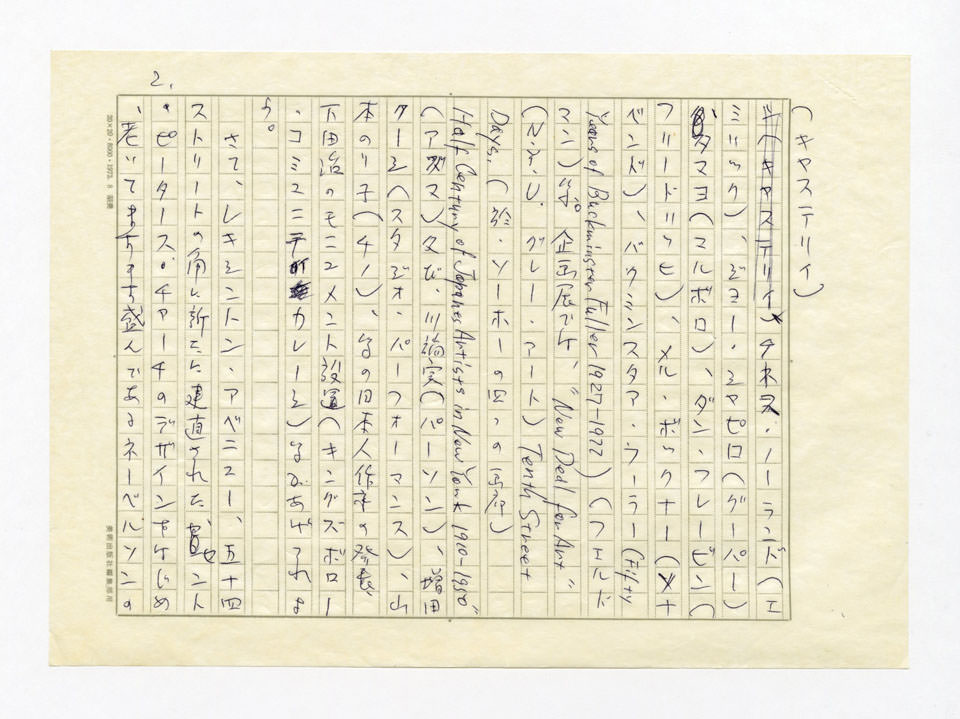 2.
(キャステリイ)
(キャステリイ)、ケネス・ノーランド(エ
ミリック)、ジョー・シャピロ(クーパー)
タマヨ(マルボロ)、ダン・フレービン(
フリードリッヒ)、メル・ボックナー(ソナ
ベンド)、バクミンスタア・フラー(Fifty
Years of Buckminster Fuller 1927–1977)(フェルド
マン)等。企画展では、"New Deal for Art"
(N.Y.U. グレー・アート) Tenth Street
Days.(ソーホーの四つの画廊)
Half Century of Japanese Artists in New York 1910–1950"
(アズマ)及び、川端実(パーソンズ)、増田
ターシ(スタジオ・パーフォーマンス)、山
本のり子(チノ)、等の日本人作家の発表
下田治のモニュメント設置(キングズボロー
・コミュニテイ カレーヂ)等があげられよ
う。
さて、レキシントン・アベニュー、五十四
ストリートの角に新たに建直された、セント
・ピータース・チャーチのデザインをはじめ
、老いてますます盛んであるネーベルソンの
20×20・8000・1973.8
美術出版社編集部用